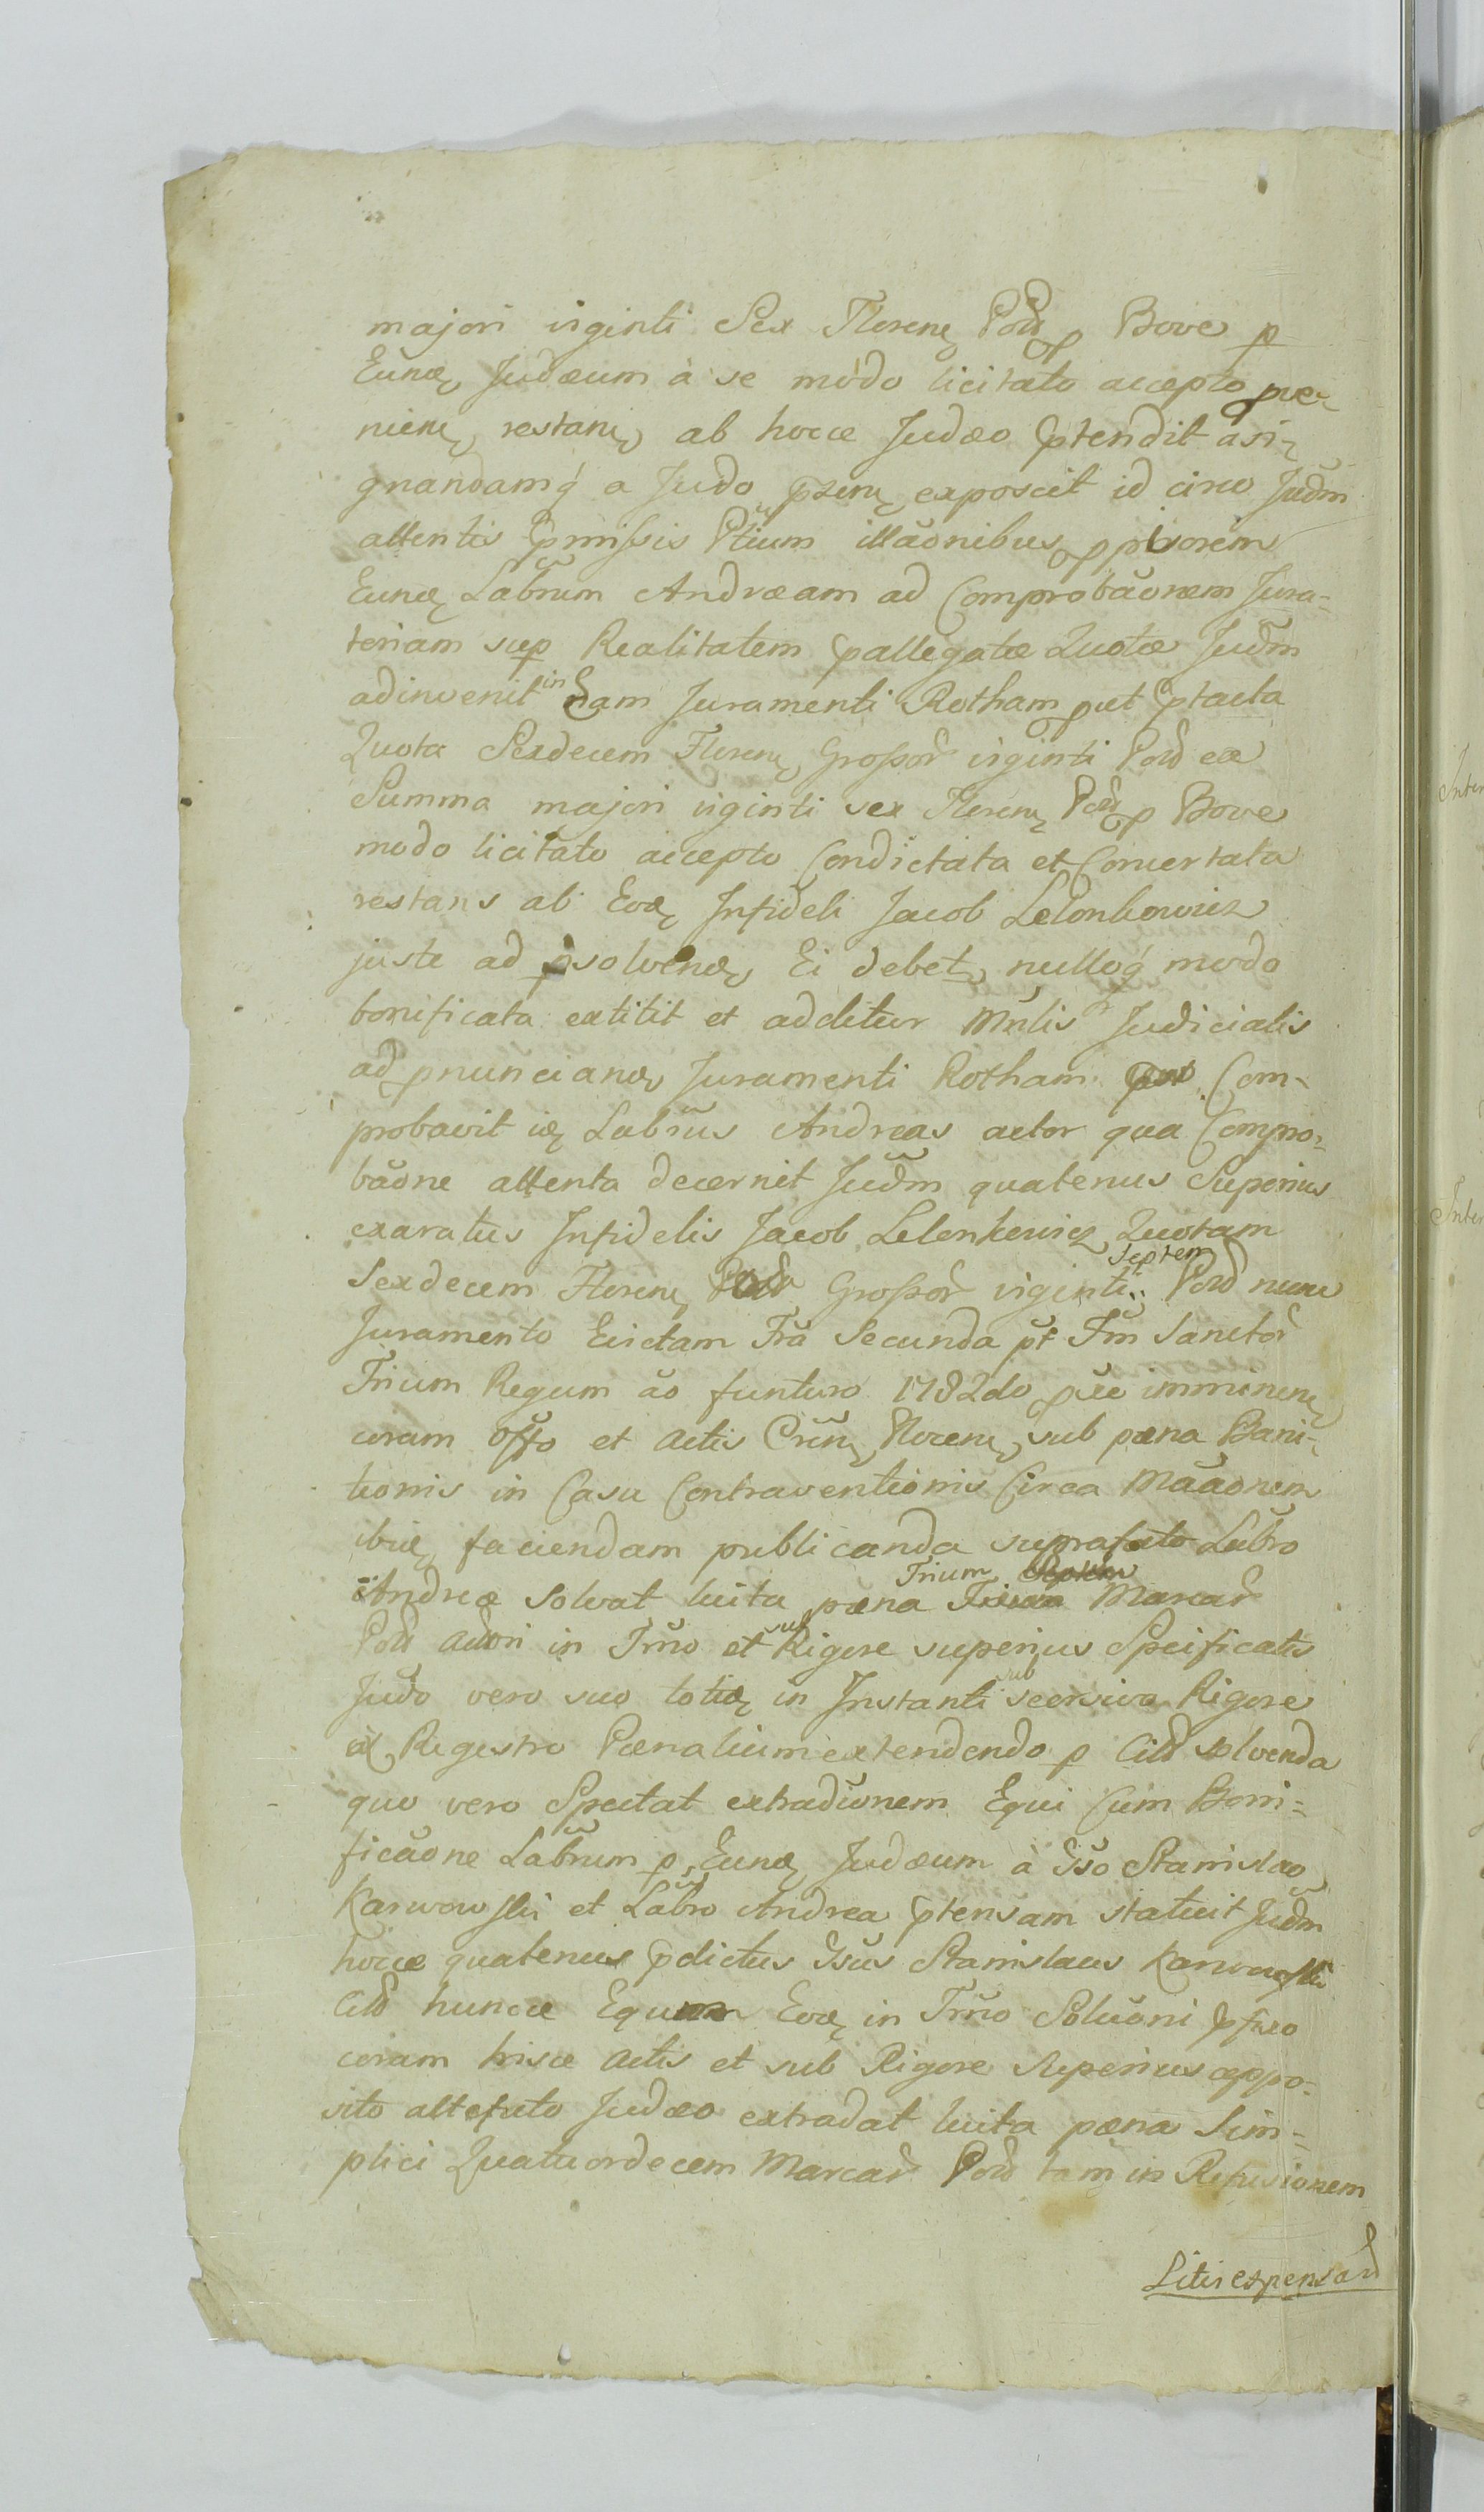 majori viginti Sex Floren Pold p Bove p
Eund Judæum à se modo licitato accepto prove-
nien restan ab hocce Judæo prtendit assi-
gnandamq a Judo przen exposcit id circo Judm
attentis prmissis Ptium illãonibus pplsorem
Eund Labrum Andræam ad Comprobãonem Jura-
toriam sup Realitatem prallegatæ Quotæ Judm
adinvenit in eam Juramenti Rotham put prtacta
Quota Sexdecem Floren Grossor viginti Pold ex
Summa majori viginti sex Floren Pold p Bove
modo licitato accepto Condictata et Concertata
restans ab Eod Infideli Jacob Lelonkowicz
juste ad psolvend Ei debet, nulloq modo
bonificata extitit et additur Mnlis Judicialis
ad pnunciand Juramenti Rotham Com-
probavit id Labrus Andreas actor qua Compro-
bãone attenta decernit Judm quatenus Superius
exaratus Infidelis Jacob Lelonkowicz Quotam
Sexdecem Floren Grossor viginti septem Pold nunc
Juramento Evictam Fra Secunda pt Fm Sanctor
Trium Regum ão funturo 1782do pxe imminen
coram Offo et Actis Crm Nocen sub pæna Bani-
tionis in Casu Contraventionis Circa Mããonem
ibid faciendam publicanda suprafato Labro
Andreæ Solvat luita pæna Trium Marcar
Pold actori in Trno et sub Rigore superius Speificatis
Judo vero suo totid in Instanti sub seersiva Rigore
ex Regestro Pœnalium extendendo p Cittd solvenda
quo vero Spectat extraditionem Equi Cum Boni-
ficãone Labrum p Eund Judæum à Gso Stanislao
Karwowski et Labro Andrea prtensam statuit Judm
hocce quatenus prdictus Gsus Stanislaus Karwowski
Cittd huncce Equum Eod in Trno Soluõni prfixo
coram hisce Actis et sub Rigore Superius appo-
sito altefato Judæo extradat luita pæna Sim-
plici Quatuordecem Marcar Pold tam in Refusionem
Litis expensar